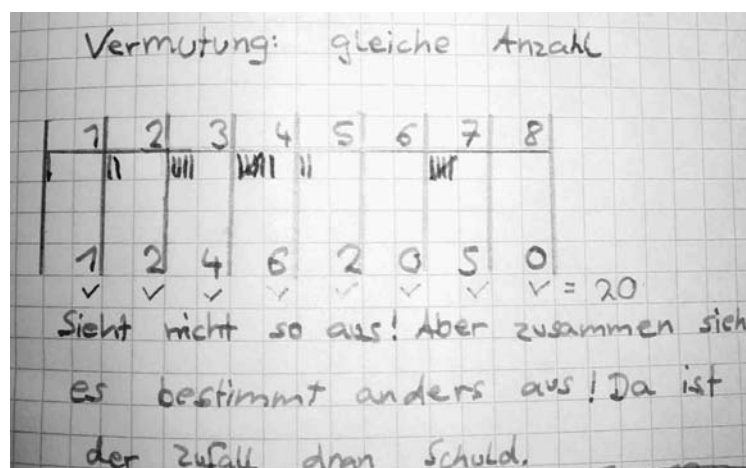 Vermutung: gleiche Anzahl
1 2 3 4 5 6 7 8
1 2 4 6 2 0 5 0
= 20
Sieht nicht so aus! Aber zusammen sieh
es bestimmt anders aus! Da ist
der Zufall dran Schuld.